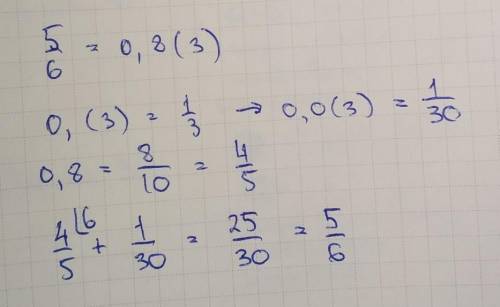 5/6 = 0,8(3)
0,(3) = 1/3 → 0,0(3) = 1/30
0,8 = 8/10 = 4/5
4/5 ⌊6 + 1/30 = 25/30 = 5/6